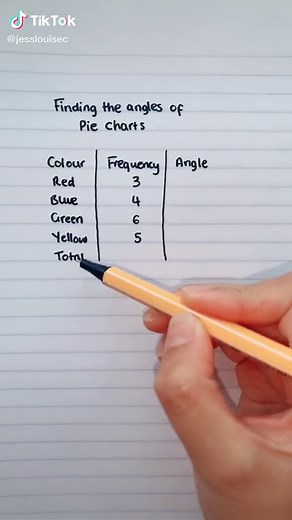 TikTok
@jesslouisec
Finding the angles of
Pie Charts
Colour Frequency Angle
Red 3
Blue 4
Green 6
Yellow 5
Total